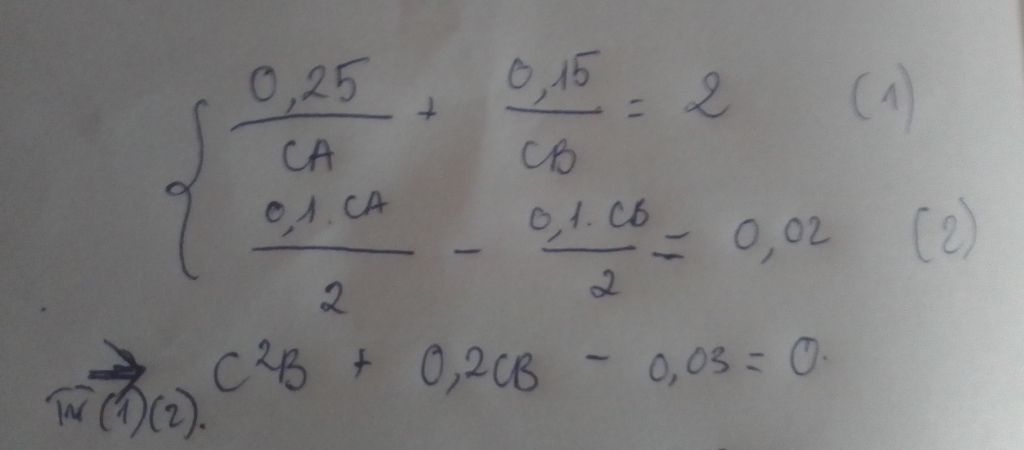 0,25/CA + 0,15/CB = 2 (1)
0,1.CA/2 - 0,1.CB/2 = 0,02 (2)
⇒ C²B + 0,2CB - 0,03 = 0.
Từ (1)(2).